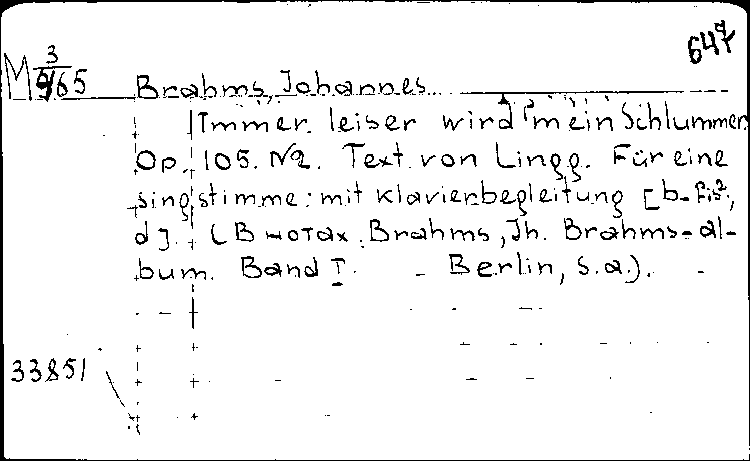 647
M 3/965 Brahms, Johannes
Immer leiser wird mein Schlummer.
Op. 105. N2. Text von Lingg. Für eine
singstimme mit Klavierbegleitung [b-fis²,
d]. (В нотах: Brahms, Jh. Brahms-al-
bum. Band I. - Berlin, s.a.). -
33851